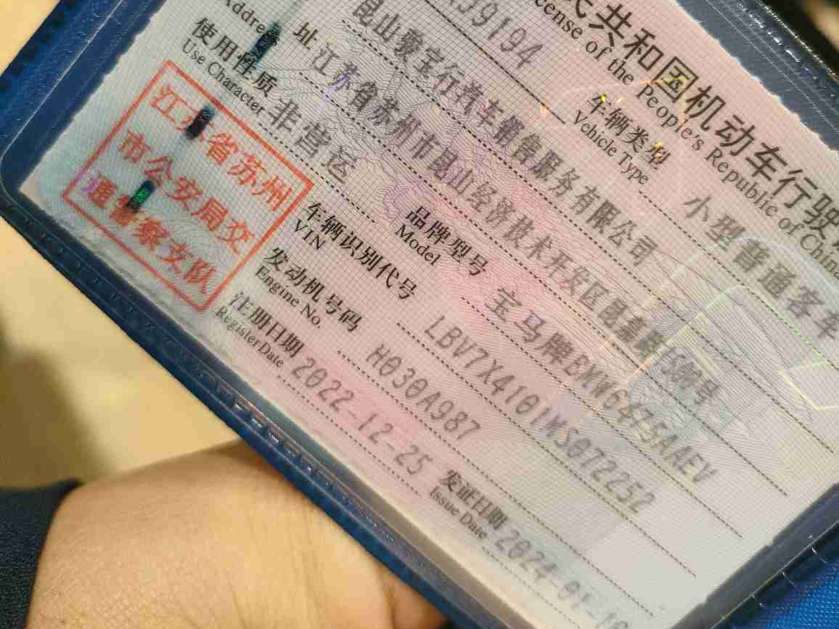 民共和国机动车行驶
icense of the People's Republic of Chi
39194
车辆类型
Vehicle Type
小型普通客车
昆山宝行汽车销售服务有限公司
Address
址
江苏省苏州市昆山经济技术开发区
使用性质
Use Character
非营运
品牌型号
Model
宝马牌BMW6475AAEV
江苏省苏州
市公安局交
通警察支队
车辆识别代号
VIN
LBV7X4101MS072252
发动机号码
Engine No.
H030A987
注册日期
Register Date
2022-12-25
发证日期
Issue Date
2024-01-1